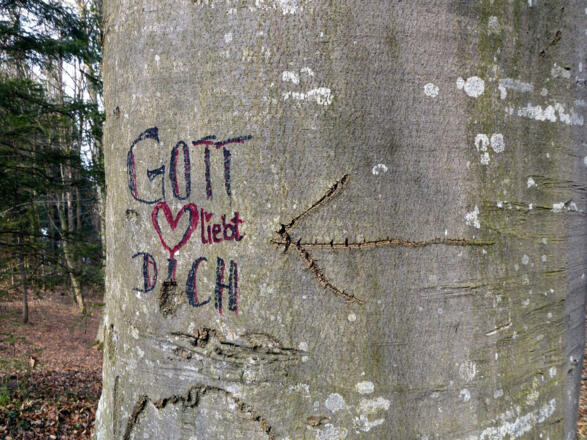 GOTT
liebt
DICH